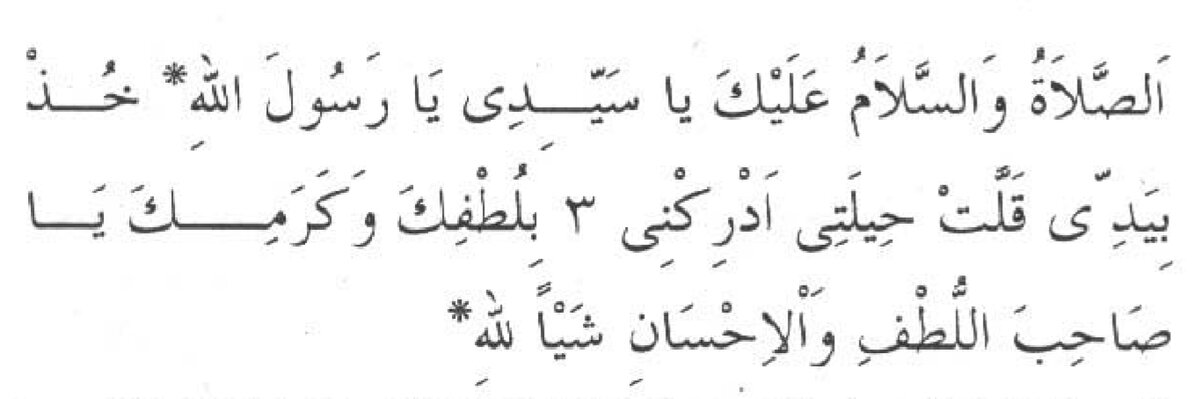 اَلصَّلَاةُ وَالسَّلَامُ عَلَيْكَ يا سَيِّدِى يَا رَسُولَ اللهِ* خُذْ
بِيَدِّى قَلَّتْ حِيلَتِى اَدْرِكْنِى ٣ بِلُطْفِكَ وَكَرَمِكَ يَا
صَاحِبَ اللُّطْفِ وَاْلاِحْسَانِ شَيْاً للهِ*